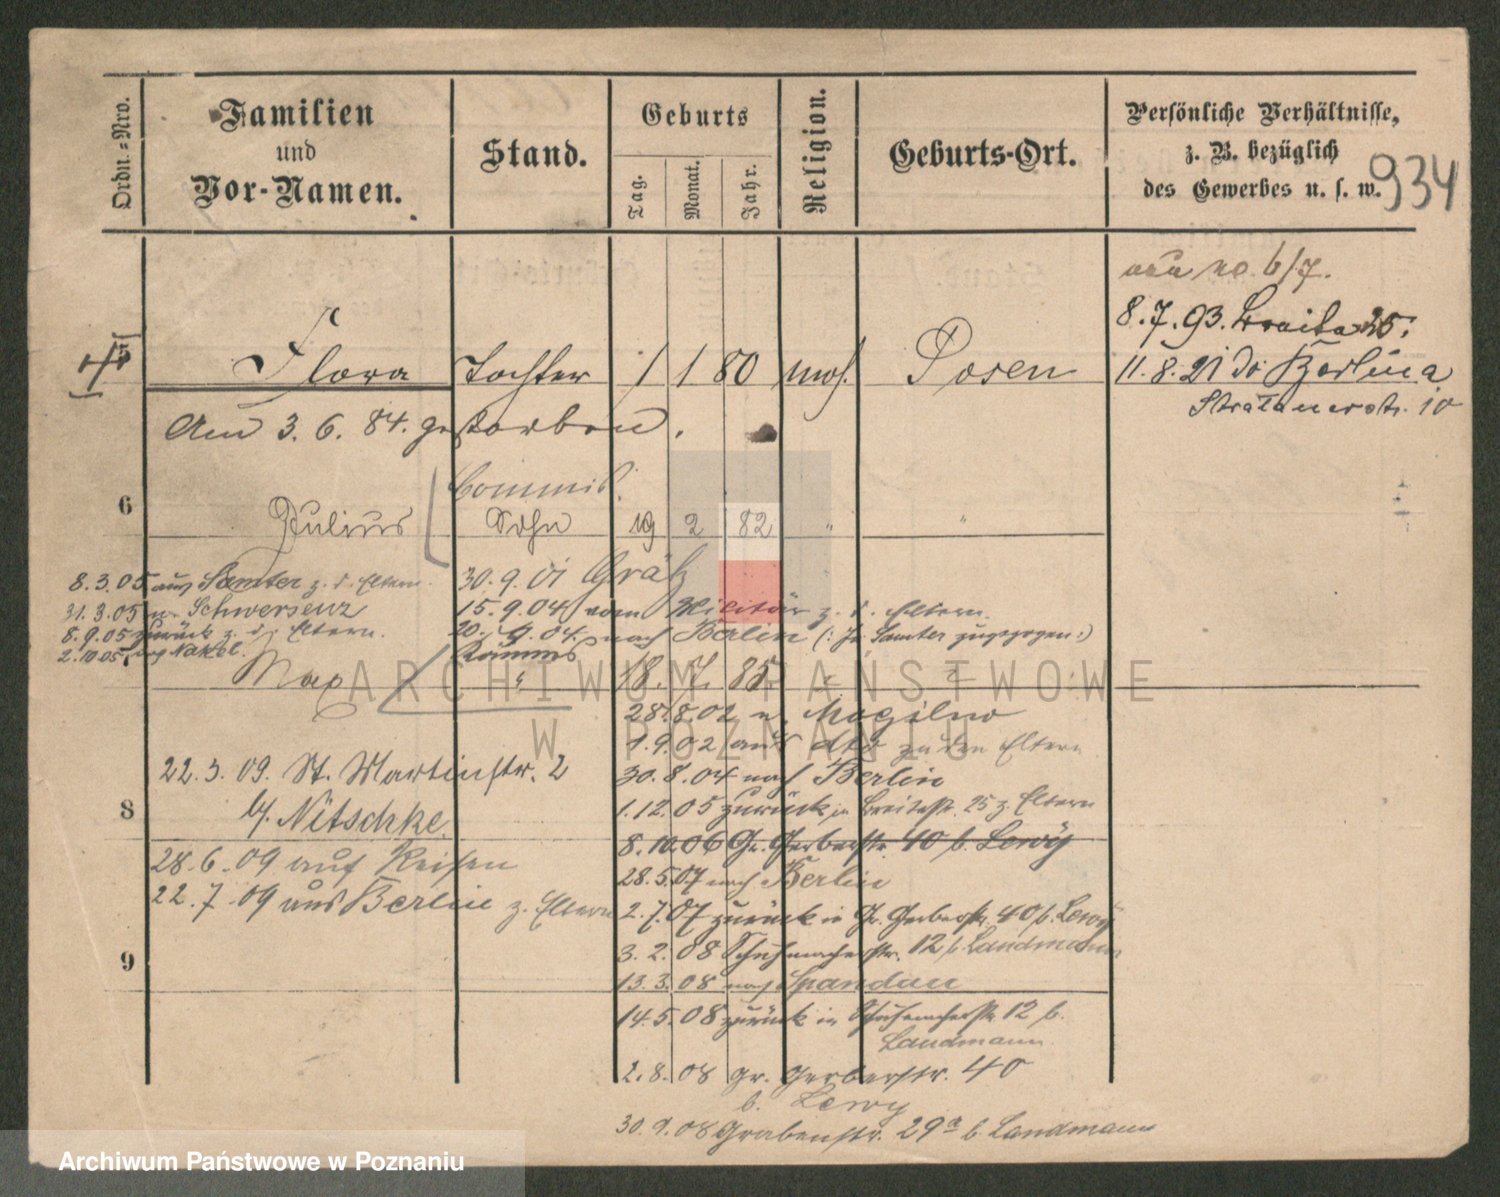 Ordn.-Nro.
Familien
und
Vor-Namen.
Stand.
Geburts
Tag.
Monat.
Jahr.
Religion.
Geburts-Ort.
Persönliche Verhältnisse,
z. B. bezüglich
des Gewerbes u. s. w.
934
8.7.93. Breite 25.
5
Flora Tochter 1 1 80 mos. Posen
11.8.21 do Berlin
10
Am 3.6.84. gestorben.
Commis.
6
Julius Sohn 19 2 82 " "
8.3.05 aus Samter z. d. Eltern.
30.9.01 Grätz
31.3.05 n. Schwersenz
15.9.04 vom Militär z. d. Eltern.
8.9.05 zurück z. d. Eltern.
20.9.04. nach Berlin (: In Samter zugezogen :)
2.10.05 nach Nakel.
Komms
Max " 18. 7. 85.
28.8.02 n. Mogilno
1.9.02 aus dto zu den Eltern
22.3.09. St. Martinstr. 2
30.8.04 nach Berlin
8
b/. Nitschke
1.12.05 zurück in Breitestr. 25 z. Eltern
8.10.06 Gr. Gerberstr. 40 b. Lewy
28.6.09 auf Reisen
28.5.07 nach Berlin
22.7.09 aus Berlin z. Eltern
2.7.07 zurück in Gr. Gerberstr. 40 b. Lewy
3.2.08 Schuhmacherstr. 12 b. Landmann
9
13.3.08 nach Spandau
14.5.08 zurück in Schuhmacherstr. 12 b.
Landmann
2.8.08 Gr. Gerberstr. 40
b. Lewy
30.9.08 Grabenstr. 29a b. Landmann
ARCHIWUM PAŃSTWOWE
W POZNANIU
Archiwum Państwowe w Poznaniu